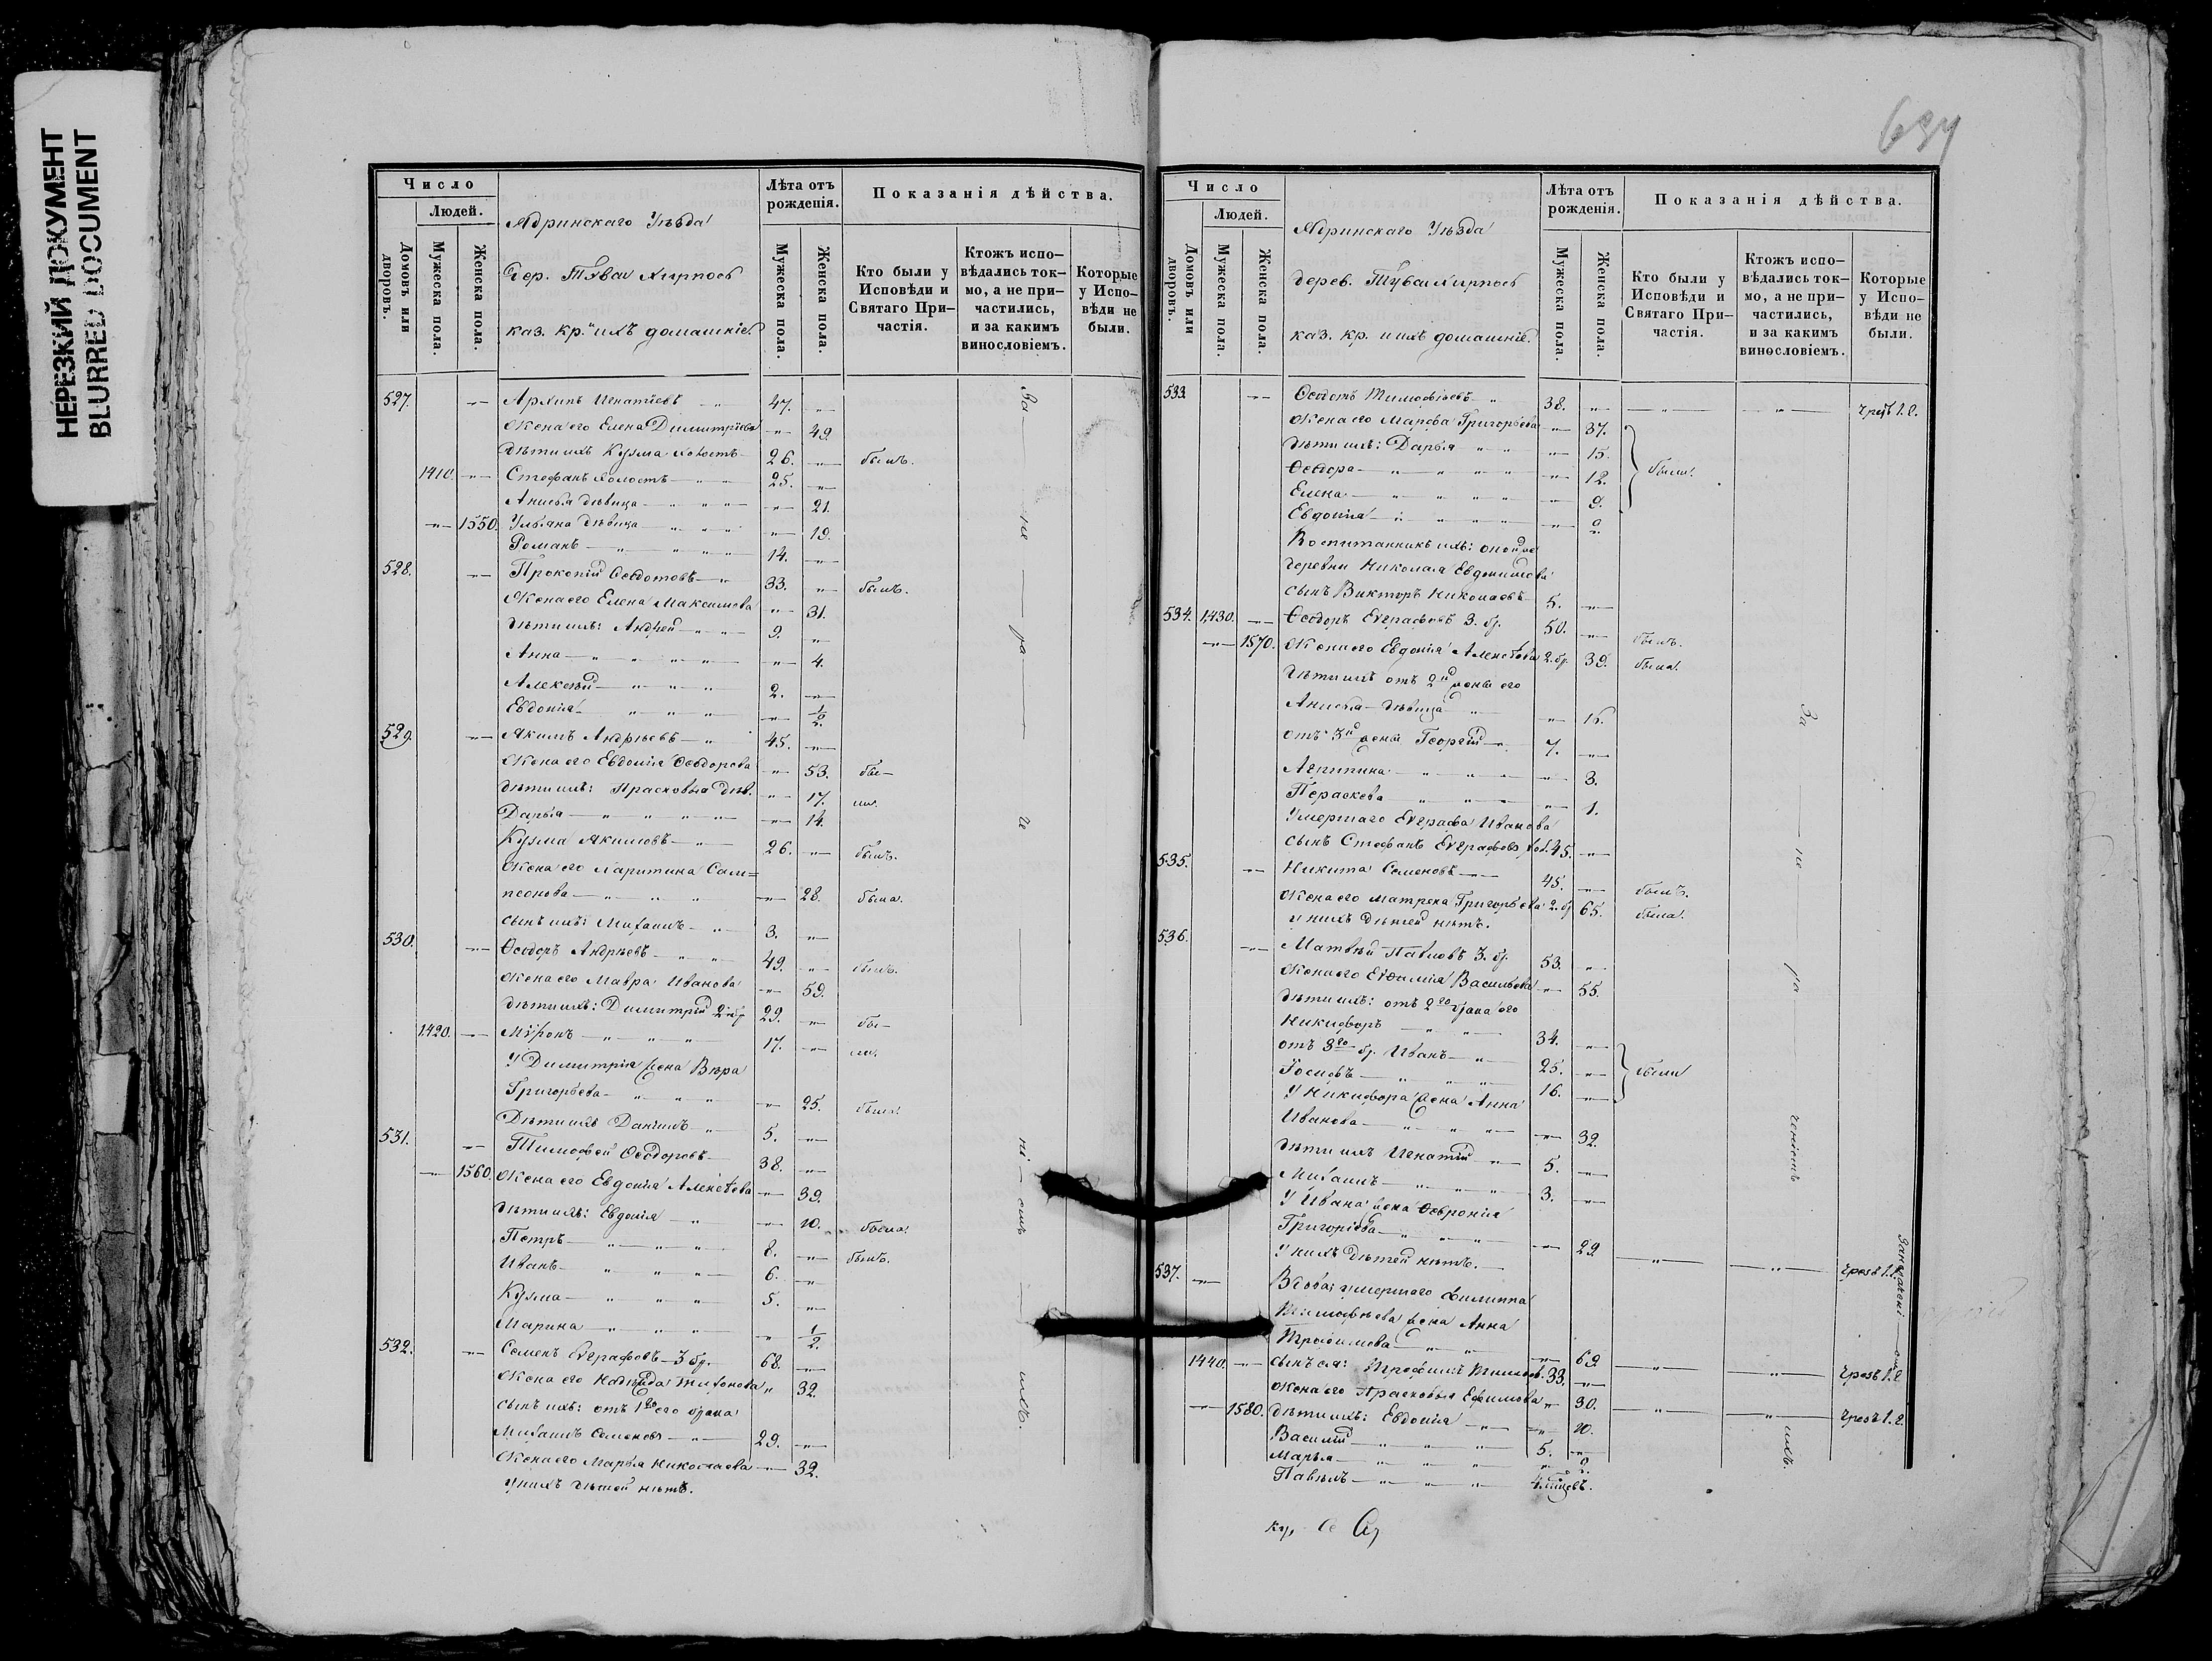 НЕРЕЗКИЙ ДОКУМЕНТ
BLURRED DOCUMENT
Число
Людей.
Домовъ или дворовъ.
Мужеска пола.
Женска пола.
Ядринскаго Уѣзда
Дер. Тува
каз. кр. ихъ домашніе.
Лѣта отъ рожденія.
Мужеска пола.
Женска пола.
Показанія дѣйства.
Кто были у Исповѣди и Святаго Причастія.
Ктожъ исповѣдались токмо, а не причастились, и за какимъ винословіемъ.
Которые у Исповѣди не были.
527. Архипъ Игнатіевъ 47.
Жена его Елена Димитріева 49.
Дѣти ихъ Кузма холостъ 26. былъ.
1410. Стефанъ холостъ 25.
Анисья дѣвица 21.
1550. Ульяна дѣвица 19.
Романъ 14.
528. Прокопій Ѳеодотовъ 33. былъ.
Жена его Елена Максимова 31.
Дѣти ихъ: Андрей 9.
Анна 4.
Алексѣй 2.
Евдокія 1/2.
529. Акимъ Андрѣевъ 45.
Жена его Евдокія Ѳеодорова 53. бы-
Дѣти ихъ: Прасковья дѣв. 17. ли.
Дарья 14.
Кузма Акимовъ 26. былъ.
Жена его Харитина Сам=
псонова 28. была.
сынъ ихъ: Михаилъ 3.
530. Ѳеодоръ Андрѣевъ 49. былъ.
Жена его Мавра Иванова 59.
Дѣти ихъ: Димитрій 2 бр 29. бы-
1420. Мѵронъ 17. ли.
У Димитрія жена Вѣра
Григорьева 25. была.
Дѣти ихъ Даніилъ 5.
531. Тимофей Ѳеодоровъ 38.
1560. Жена его Евдокія Алексѣева 39.
Дѣти ихъ: Евдокія 10. была.
Петръ 8. былъ.
Иванъ 6.
Кузма 5.
Марина 1/2.
532. Семенъ Евграфовъ 3 бр. 68.
Жена его Надежда Тихонова 32.
сынъ ихъ: отъ 1го его брака
Михаилъ Семеновъ 29.
Жена его Марья Николаева 32.
У нихъ дѣтей нѣтъ.
За не ра че ні емъ ихъ.
634
Число
Людей.
Домовъ или дворовъ.
Мужеска пола.
Женска пола.
Ядринскаго Уѣзда
дерев. Тува
каз. кр. и ихъ домашніе.
Лѣта отъ рожденія.
Мужеска пола.
Женска пола.
Показанія дѣйства.
Кто были у Исповѣди и Святаго Причастія.
Ктожъ исповѣдались токмо, а не причастились, и за какимъ винословіемъ.
Которые у Исповѣди не были.
533. Ѳеодотъ Тимофѣевъ 38. чрезъ 1. г.
Жена его Марфа Григорьева 37.
Дѣти ихъ: Дарья 15.
Ѳеодора 12. были.
Елена 9.
Евдокія
Воспитанникъ ихъ: оной же
деревни Николая Евдокимова
сынъ Викторъ Николаевъ 5.
534. 1430. Ѳеодоръ Евграфовъ 3. бр. 50. былъ.
1570. Жена его Евдокія Алексѣева 2. бр. 39. была.
Дѣти ихъ отъ 2й жены его
Анисья дѣвица 16.
отъ 3й жены Георгій 7.
Агрипина 3.
Параскева 1.
Умершаго Евграфа Иванова
сынъ Стефанъ Евграфовъ хол. 45.
535. Никита Семеновъ 45. былъ.
Жена его Матрена Григорьева 2. бр 65. была.
У нихъ дѣтей нѣтъ.
536. Матвѣй Павловъ 3. бр. 53.
Жена его Евфимія Васильева 55.
Дѣти ихъ: отъ 2го брака его
Никифоръ 34.
отъ 3го бр. Иванъ 25. были
Іосифъ 16.
У Никифора жена Анна
Иванова 32.
Дѣти ихъ Игнатій 5.
Михаилъ 3.
У Ивана жена Ѳевронія
Григоріева 29
У нихъ дѣтей нѣтъ. чрезъ 1. г.
537. Вдова умершаго Филиппа
Тимофѣева жена Анна
Трофимова 69
1440. сынъ ея: Трофимъ 33. чрезъ 1. г.
Жена его Прасковья Ефимова 30.
1580. Дѣти ихъ: Евдокія 10. чрезъ 1. г.
Василій 5.
Марья 2.
Павелъ 4.
За не ра ченіемъ ихъ.